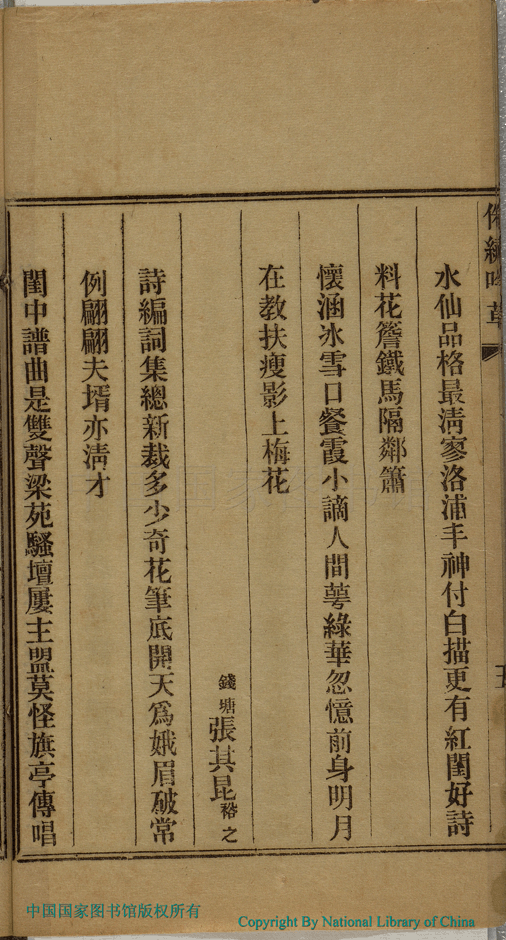 水仙品格最淸寥洛浦丰神付白描更有紅閨好詩
料花簷鐵馬隔鄰簫
懷涵冰雪口餐霞小謫人間萼綠華忽憶前身明月
在教扶瘦影上梅花
錢塘張其昆裕之
詩編詞集總新裁多少奇花筆底開天爲娥眉破常
例翩翩夫壻亦淸才
閨中譜曲是雙聲梁苑騷壇屢主盟莫怪旗亭傳唱
中国国家图书馆版权所有
Copyright By National Library of China